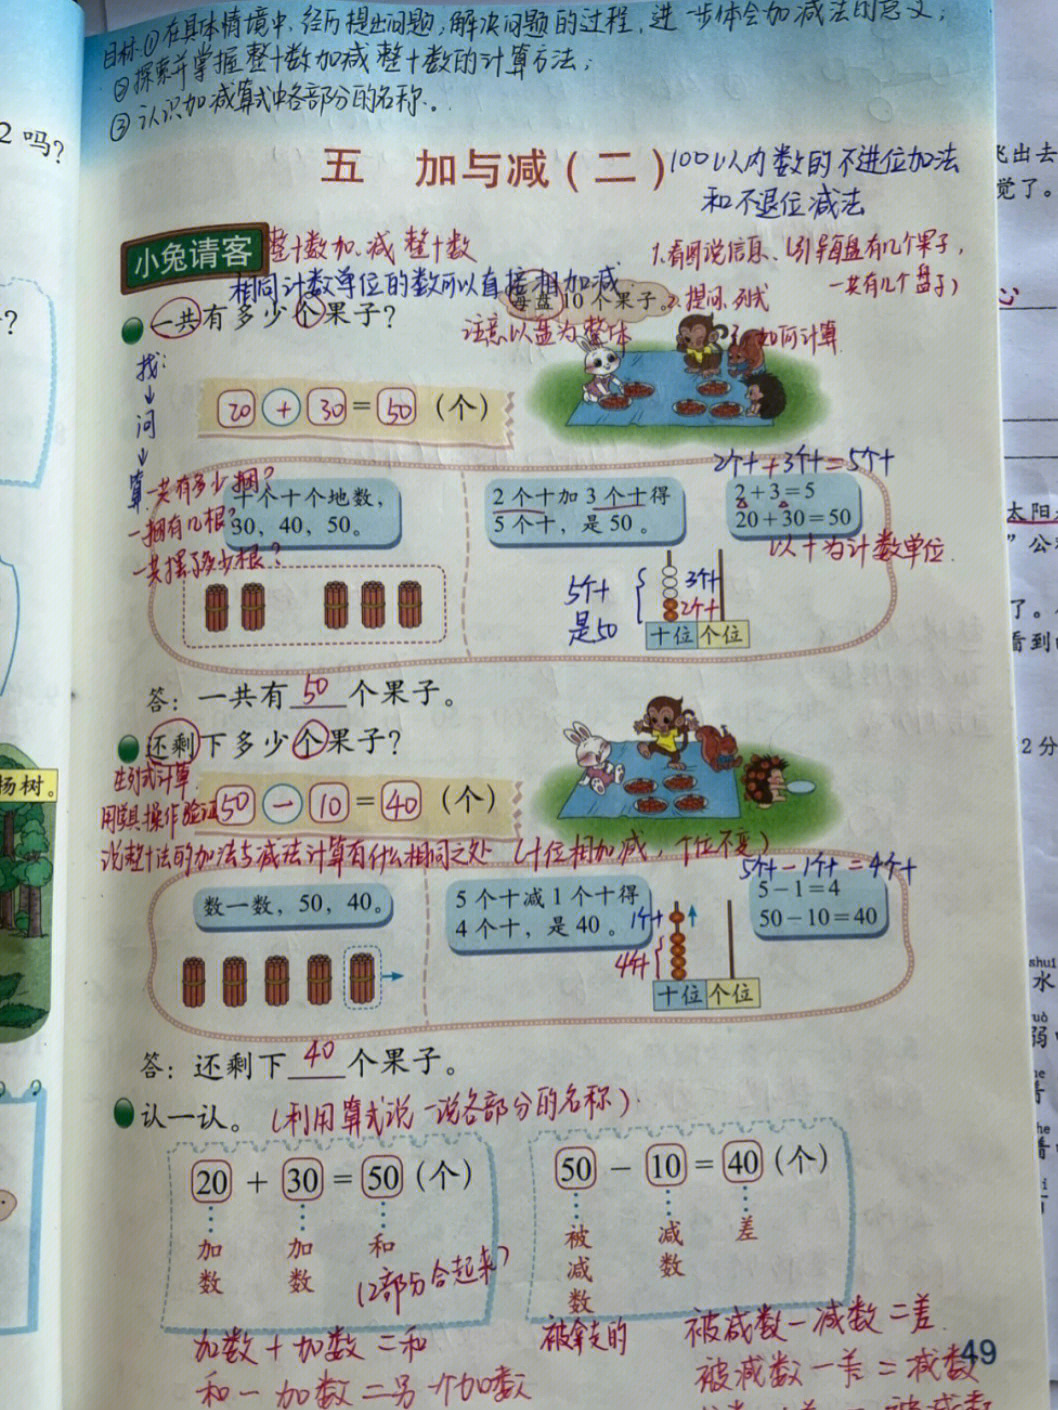 目标:①在具体情境中,经历提出问题,解决问题的过程,进一步体会加减法的意义;
②探索并掌握整十数加减整十数的计算方法;
③认识加减算式中各部分的名称。
2 吗?
五 加与减(二)
100以内数的不进位加法
和不退位减法
小兔请客
整十数加、减整十数
相同计数单位的数可以直接相加减
1.看图说信息、(引导每盘有几个果子,
一共有几个盘子)
每盘10个果子。
2.提问、列式
注意以盘为整体
3.如何计算
一共有多少个果子?
找:
↓
问
↓
算
20 + 30 = 50 (个)
一共有多少捆?
一捆有几根?
一共摆了多少根?
十个十个地数,
30,40,50。
2个十加3个十得
5个十,是50。
2个十+3个十=5个十
2+3=5
20+30=50
以十为计数单位.
5个十
是50
3个十
2个十
十位 个位
答:一共有 50 个果子。
还剩下多少个果子?
50 − 10 = 40 (个)
用学具操作验证
说整十法的加法与减法计算有什么相同之处 (十位相加减,个位不变)
5个十−1个十=4个十
数一数,50,40。
5个十减1个十得
4个十,是40。
5−1=4
50−10=40
1个十
4个十
十位 个位
答:还剩下 40 个果子。
认一认。(利用算式说一说各部分的名称)
20 + 30 = 50 (个)
加数 加数 和
(2部分合起来)
50 − 10 = 40 (个)
被减数 减数 差
被拿走的
加数+加数=和
和−加数=另一个加数
被减数−减数=差
被减数−差=减数
49
杨树。
飞出去
觉了。
心
太阳
了。
看到
2分
shuǐ
水
弱